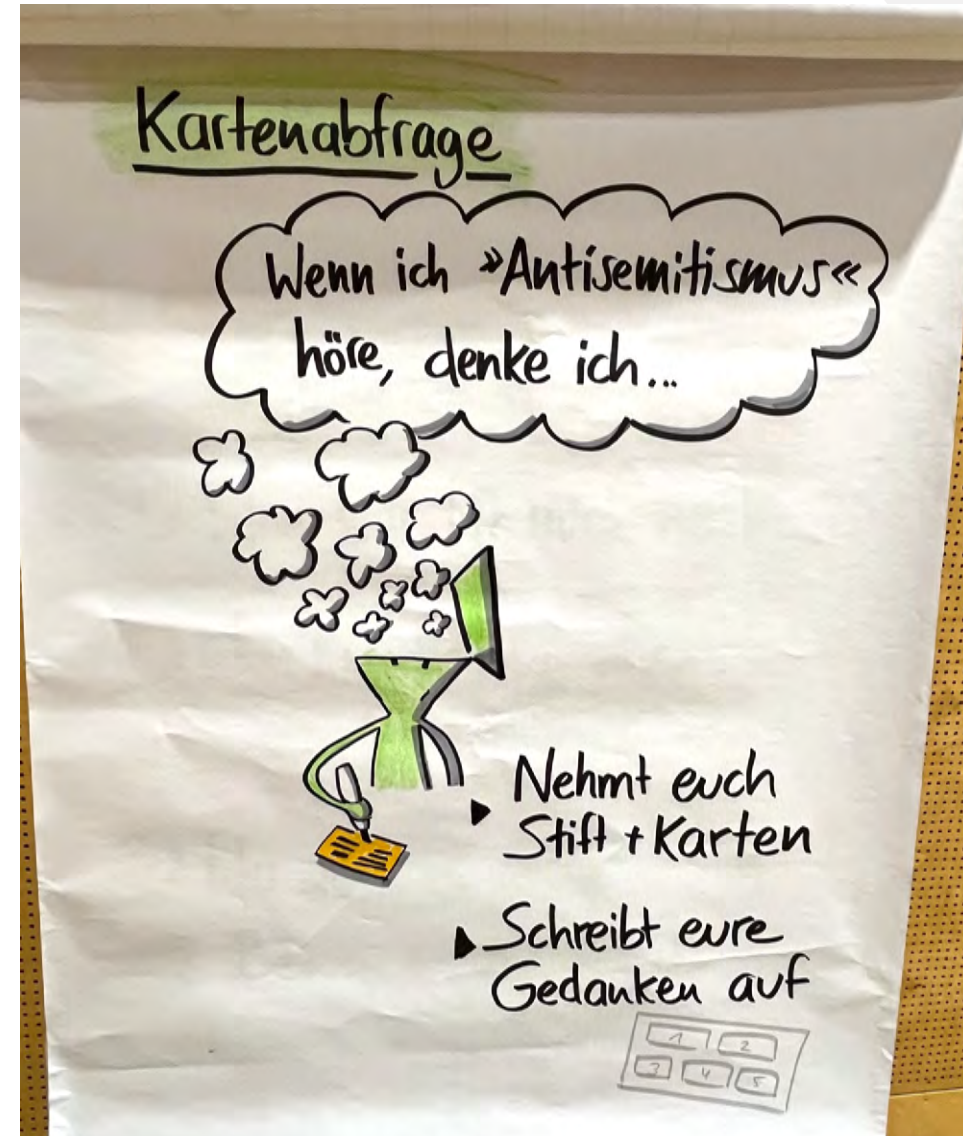 Kartenabfrage
Wenn ich »Antisemitismus«
höre, denke ich...
▸ Nehmt euch
Stift + Karten
▸ Schreibt eure
Gedanken auf
1 2
3 4 5